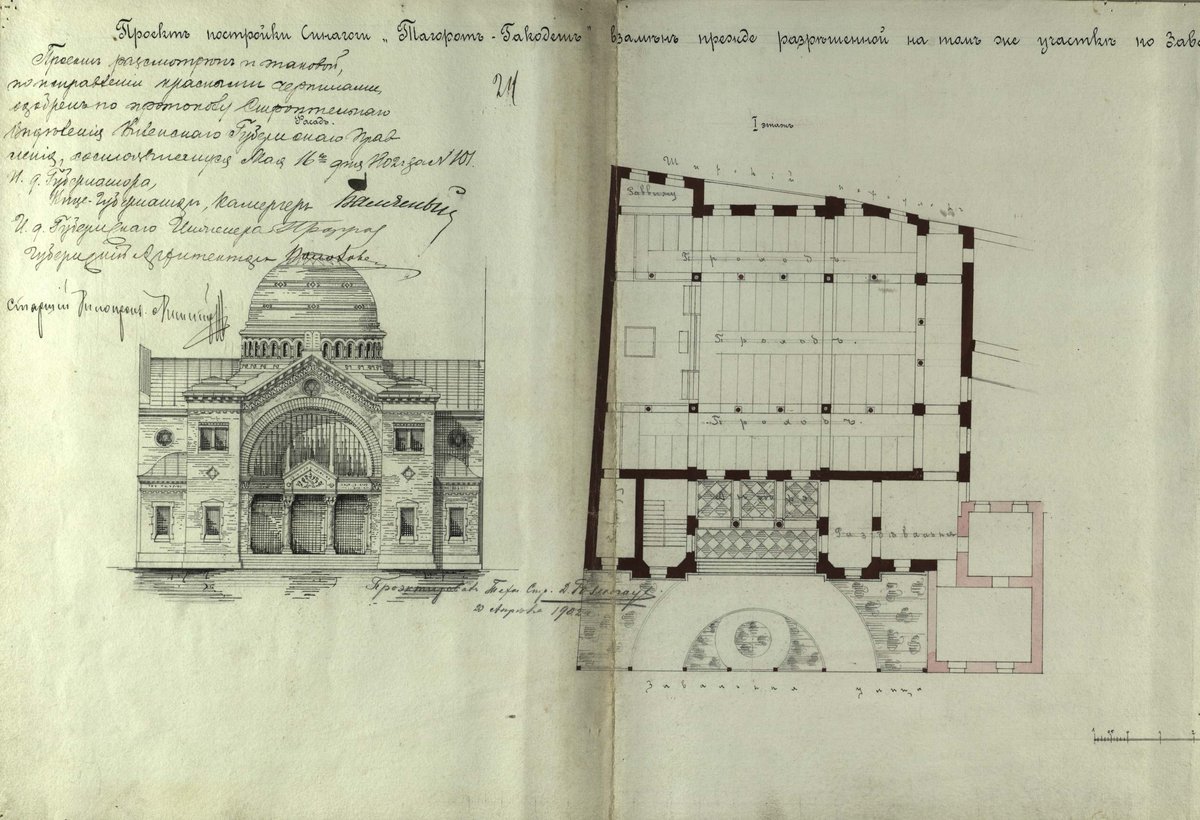 Проектъ постройки Синагоги „Тагоротъ-Гакодешъ" взамѣнъ прежде разрѣшенной на томъ же участкѣ по Зава
Проектъ разсмотрѣнъ и таковой,
по исправленіи красными чернилами,
одобренъ по протоколу Строительнаго
Отдѣленія Кіевскаго Губернскаго Прав
ленія, состоявшемуся Мая 16го дня 1902 года № 101.
И. д. Губернатора,
Вице-Губернаторъ, Камергеръ
И. д. Губернскаго Инженера
Губернскій Архитекторъ
Старшій
24
Фасадъ
I этажъ
Проходъ.
Проходъ.
Проходъ.
Раздѣвальня
Проэктировалъ Техн. Стр.
20 Апрѣля 1902 г.
Завальная улица